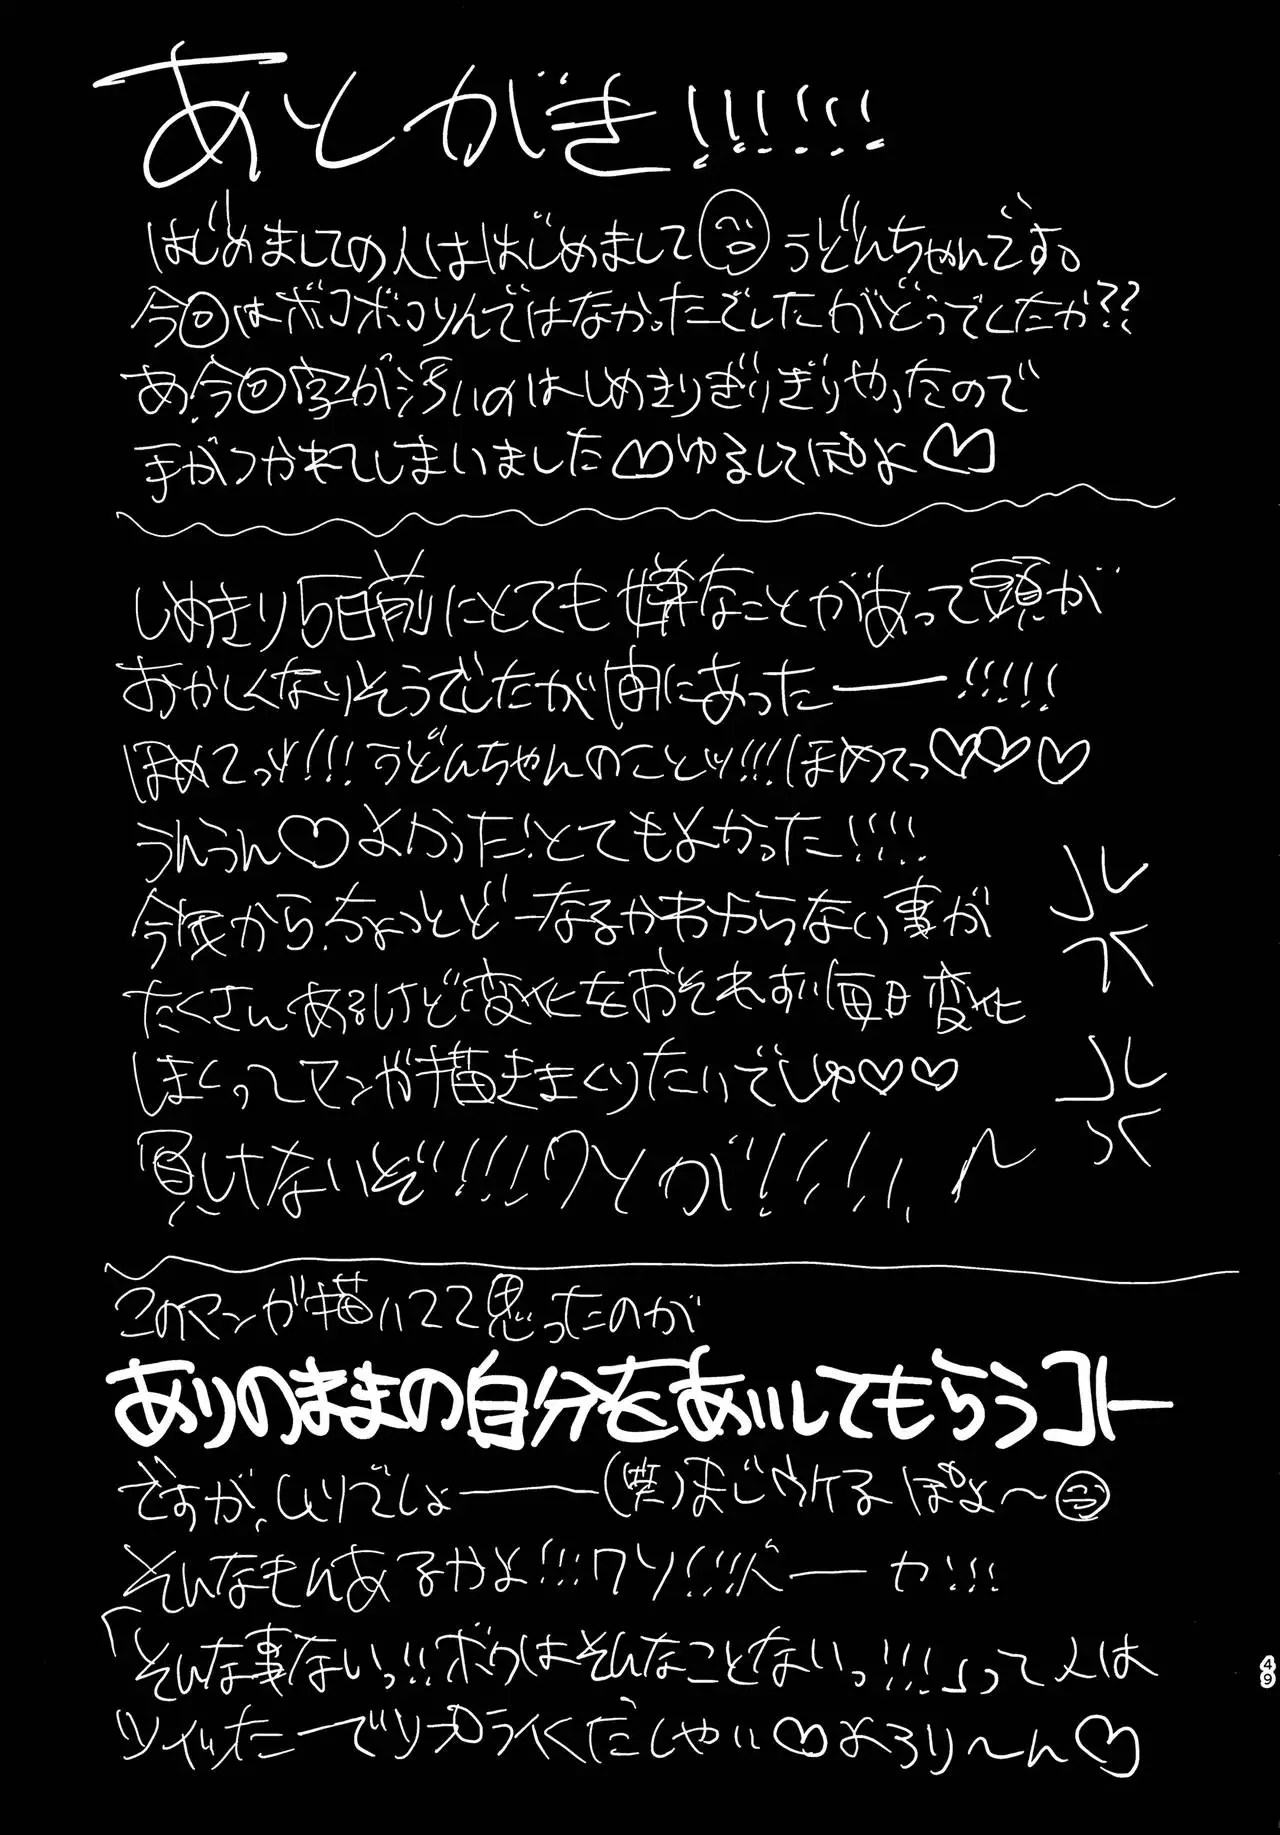 あとがき!!!!!!
はじめましての人ははじめまして うどんちゃんです。
今回はボコボコりんではなかったでしたがどうでしたか??
あ、今回字が汚いのはしめきりぎりぎりやったので
手がつかれてしまいました♡ゆるしてぽよ♡
しめきり5日前にとても嫌なことがあって頭が
おかしくなりそうでしたが間にあったー!!!!!
ほめてっツ!!!うどんちゃんのことッ!!!ほめてっ♡♡♡
うんうん♡よかった!とてもよかった!!!!
今後から、ちょっとどーなるかわからない事が
たくさんあるけど変化をおそれずに毎日変化
しまくってマンガ描きまくりたいでしゅ♡♡
負けてないぞ!!!!クソが!!!!!
このマンガ描いてて思ったのが
ありのままの自分をあいしてもらうコト
ですが、ムリでしょー(笑)まじウケるぽよ〜
そんなもんあるかよ!!!!クソ!!!!バーカ!!!
「そんな事ないっ!!ボクはそんなことないっ!!!」って人は
ツイッたーでリプライくだしゃい♡よろり〜ん♡
49